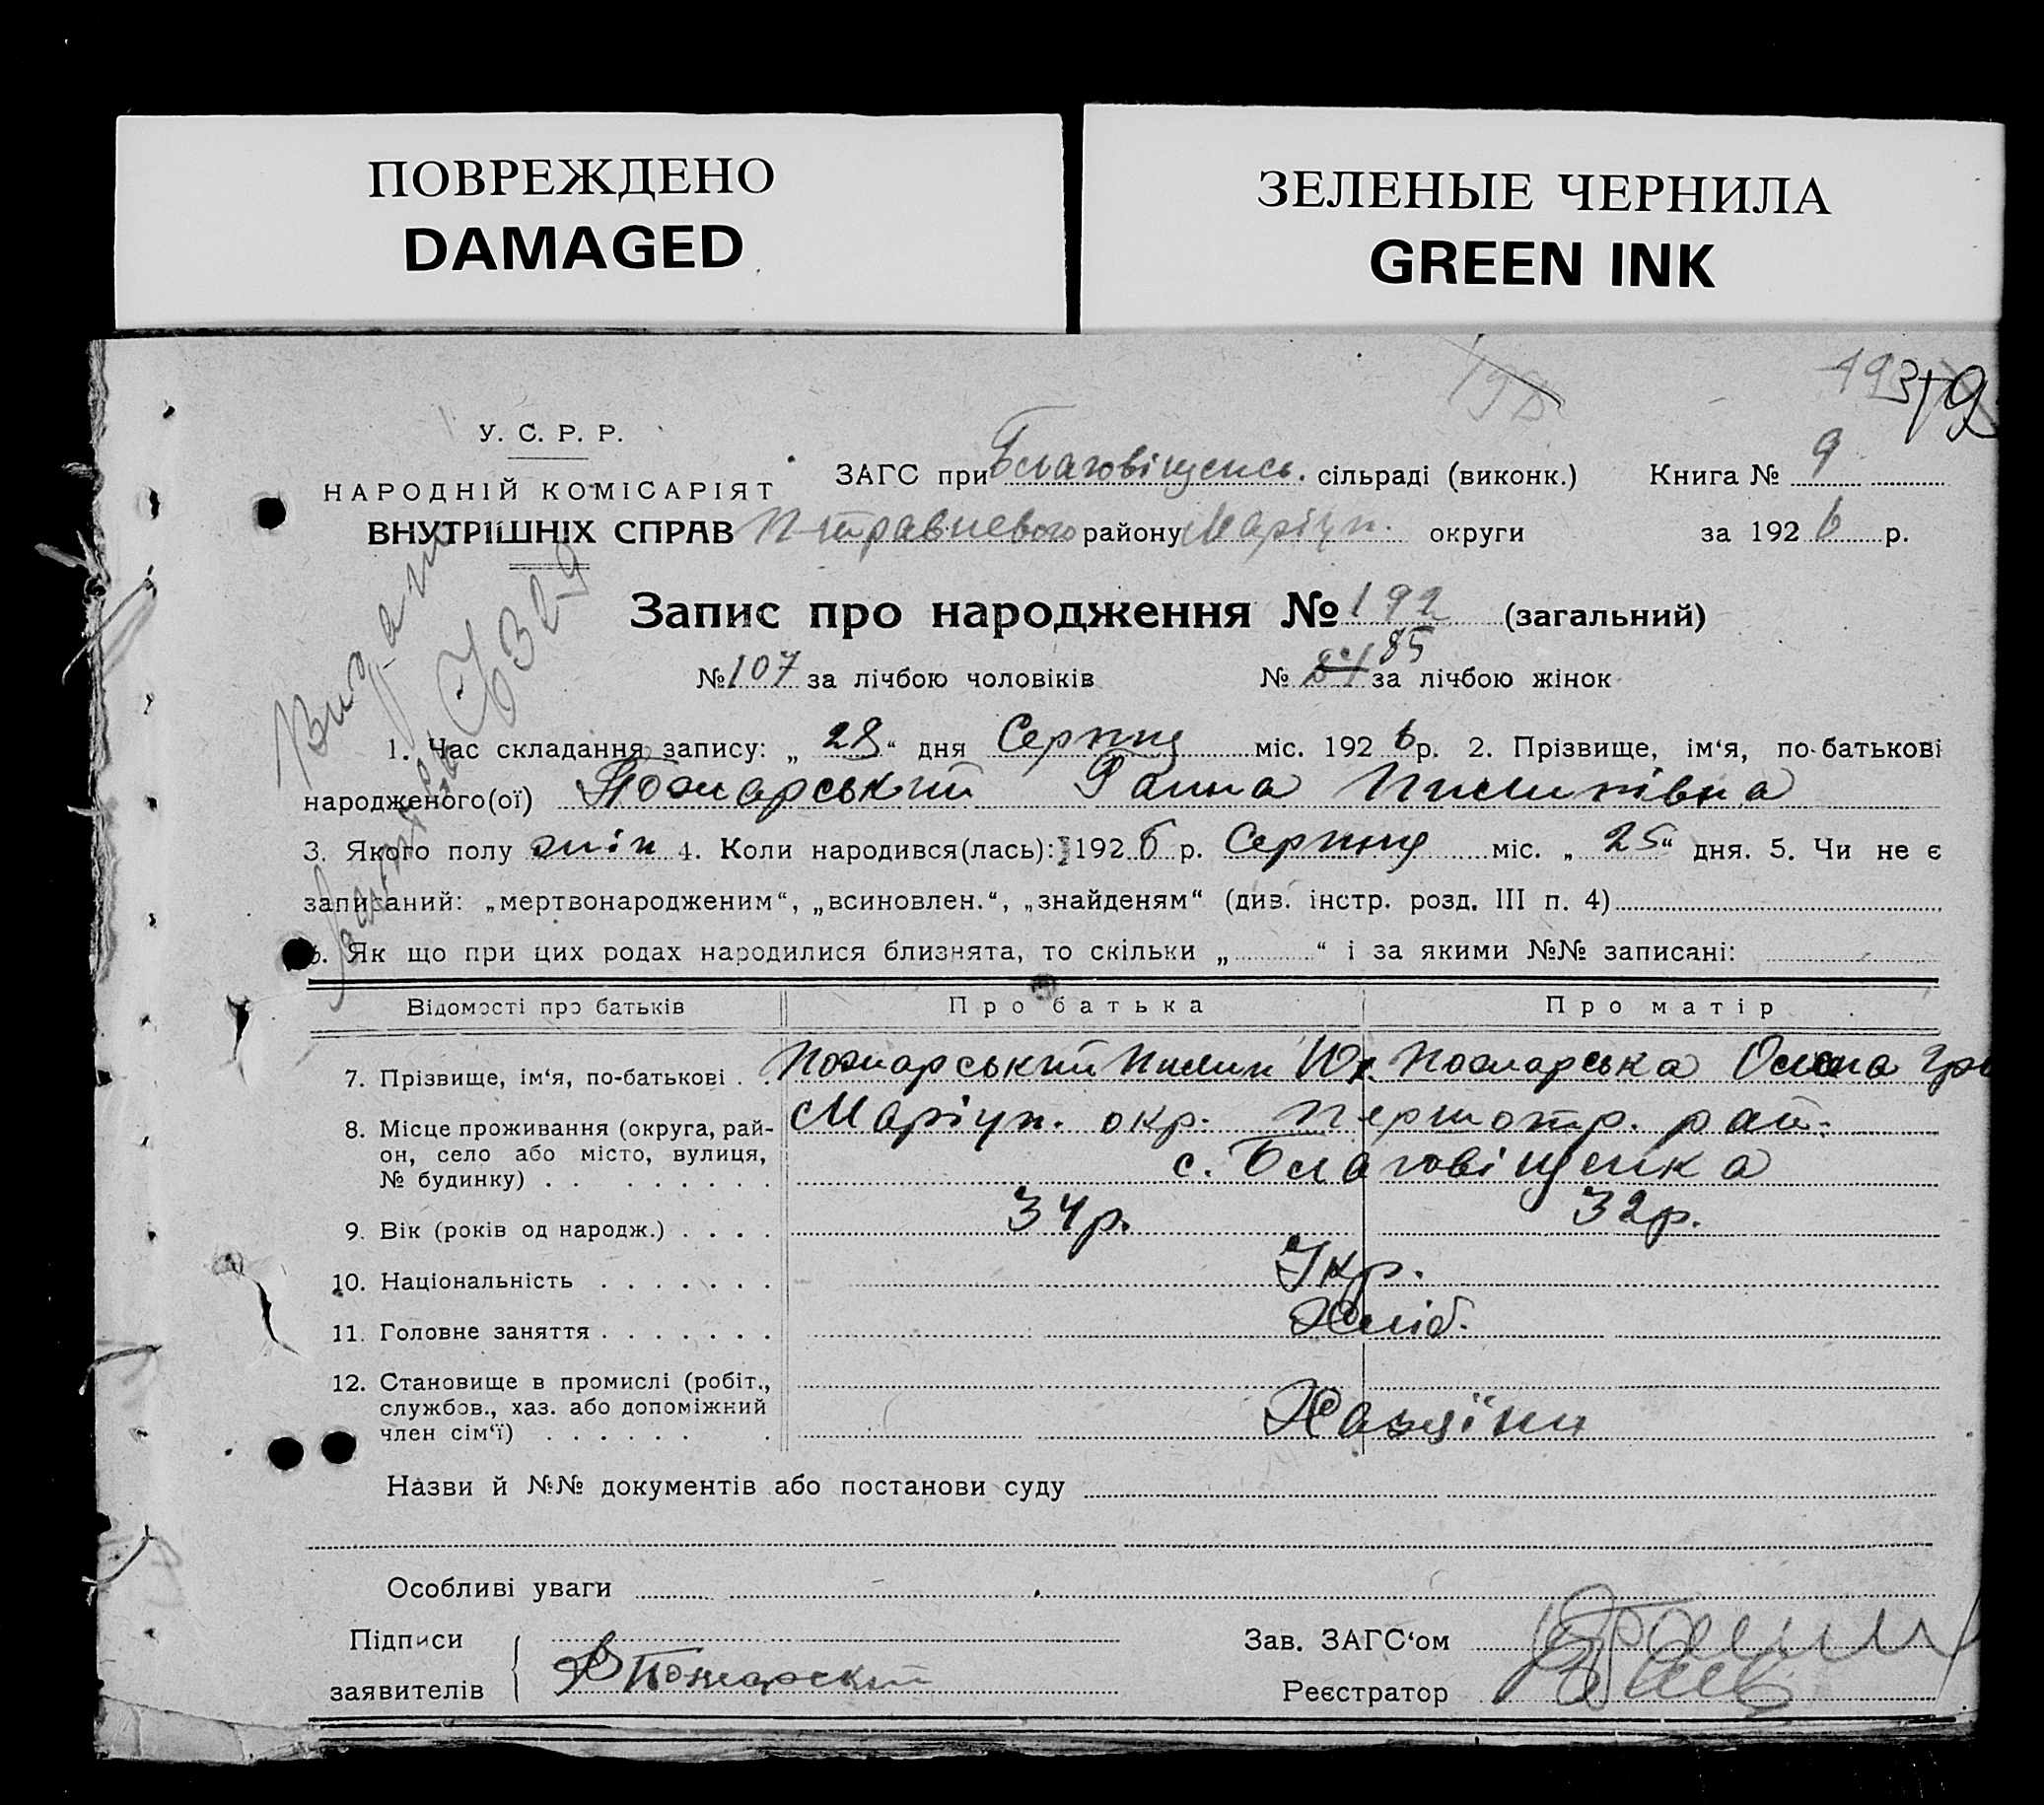 ПОВРЕЖДЕНО
DAMAGED
ЗЕЛЕНЫЕ ЧЕРНИЛА
GREEN INK
198
319
У. С. Р. Р.
НАРОДНІЙ КОМІСАРІЯТ
ВНУТРІШНІХ СПРАВ
ЗАГС при Благовіщенсь. сільраді (виконк.) Книга № 9
П-травневого району Маріуп. округи за 1926 р.
Видано
Запис про народження № 192 (загальний)
№ 107 за лічбою чоловіків № 84 85 за лічбою жінок
1. Час складання запису: „ 28 “ дня Серпня міс. 1926 р. 2. Прізвище, ім‘я, по-батькові
народженого(ої) Пожарський Ганна Пилипівна
3. Якого полу жін 4. Коли народився(лась): 1926 р. Серпня міс. „ 25 “ дня. 5. Чи не є
записаний: „мертвонародженим“, „всиновлен.“, „знайденям“ (див. інстр. розд. III п. 4)
6. Як що при цих родах народилися близнята, то скільки „ “ і за якими №№ записані:
Відомості про батьків Про батька Про матір
7. Прізвище, ім‘я, по-батькові . . Пожарський Пилип Юх. Пожарська Олена Гри
8. Місце проживання (округа, рай- Маріуп. окр. Першотр. рай.
он, село або місто, вулиця, с. Благовіщенка
№ будинку) . . . . . . . . .
9. Вік (років од народж.) . . . . 34р. 32р.
10. Національність . . . . . . . Укр.
11. Головне заняття . . . . . . . Хліб.
12. Становище в промислі (робіт.,
службов., хаз. або допоміжний Хазяїни
член сім‘ї) . . . . . . .
Назви й №№ документів або постанови суду
Особливі уваги
Підписи Зав. ЗАГС‘ом
заявителів Пожарский Реєстратор